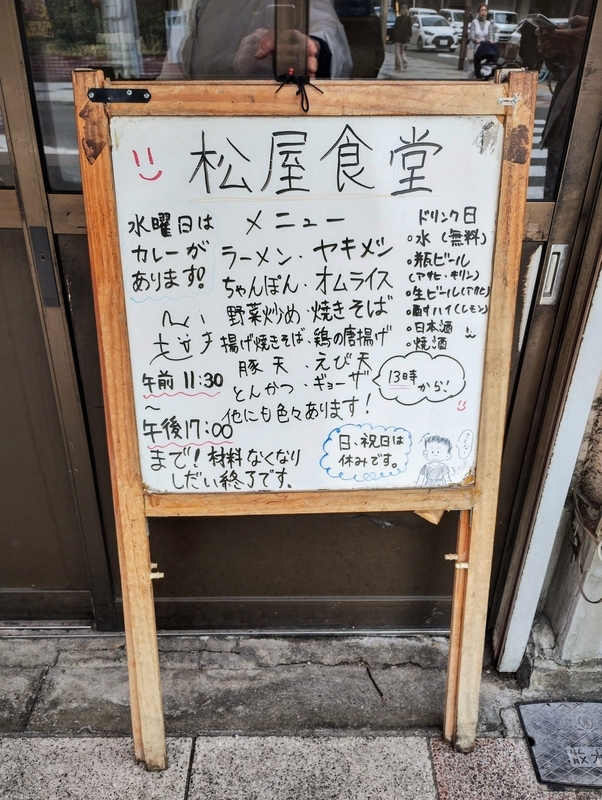 松屋食堂
水曜日は
カレーが
あります!
午前11:30
~
午後17:00
まで!材料なくなり
しだい終了です。
メニュー
ラーメン・ヤキメシ
ちゃんぽん・オムライス
野菜炒め・焼きそば
揚げ焼きそば・鶏の唐揚げ
豚天・えび天
とんかつ・ギョーザ
他にも色々あります!
13時
から!
日、祝日は
休みです。
ドリンク日
・水(無料)
・瓶ビール
(アサヒ・キリン)
・生ビール(アサヒ)
・酎ハイ(レモン)
・日本酒
・焼酒